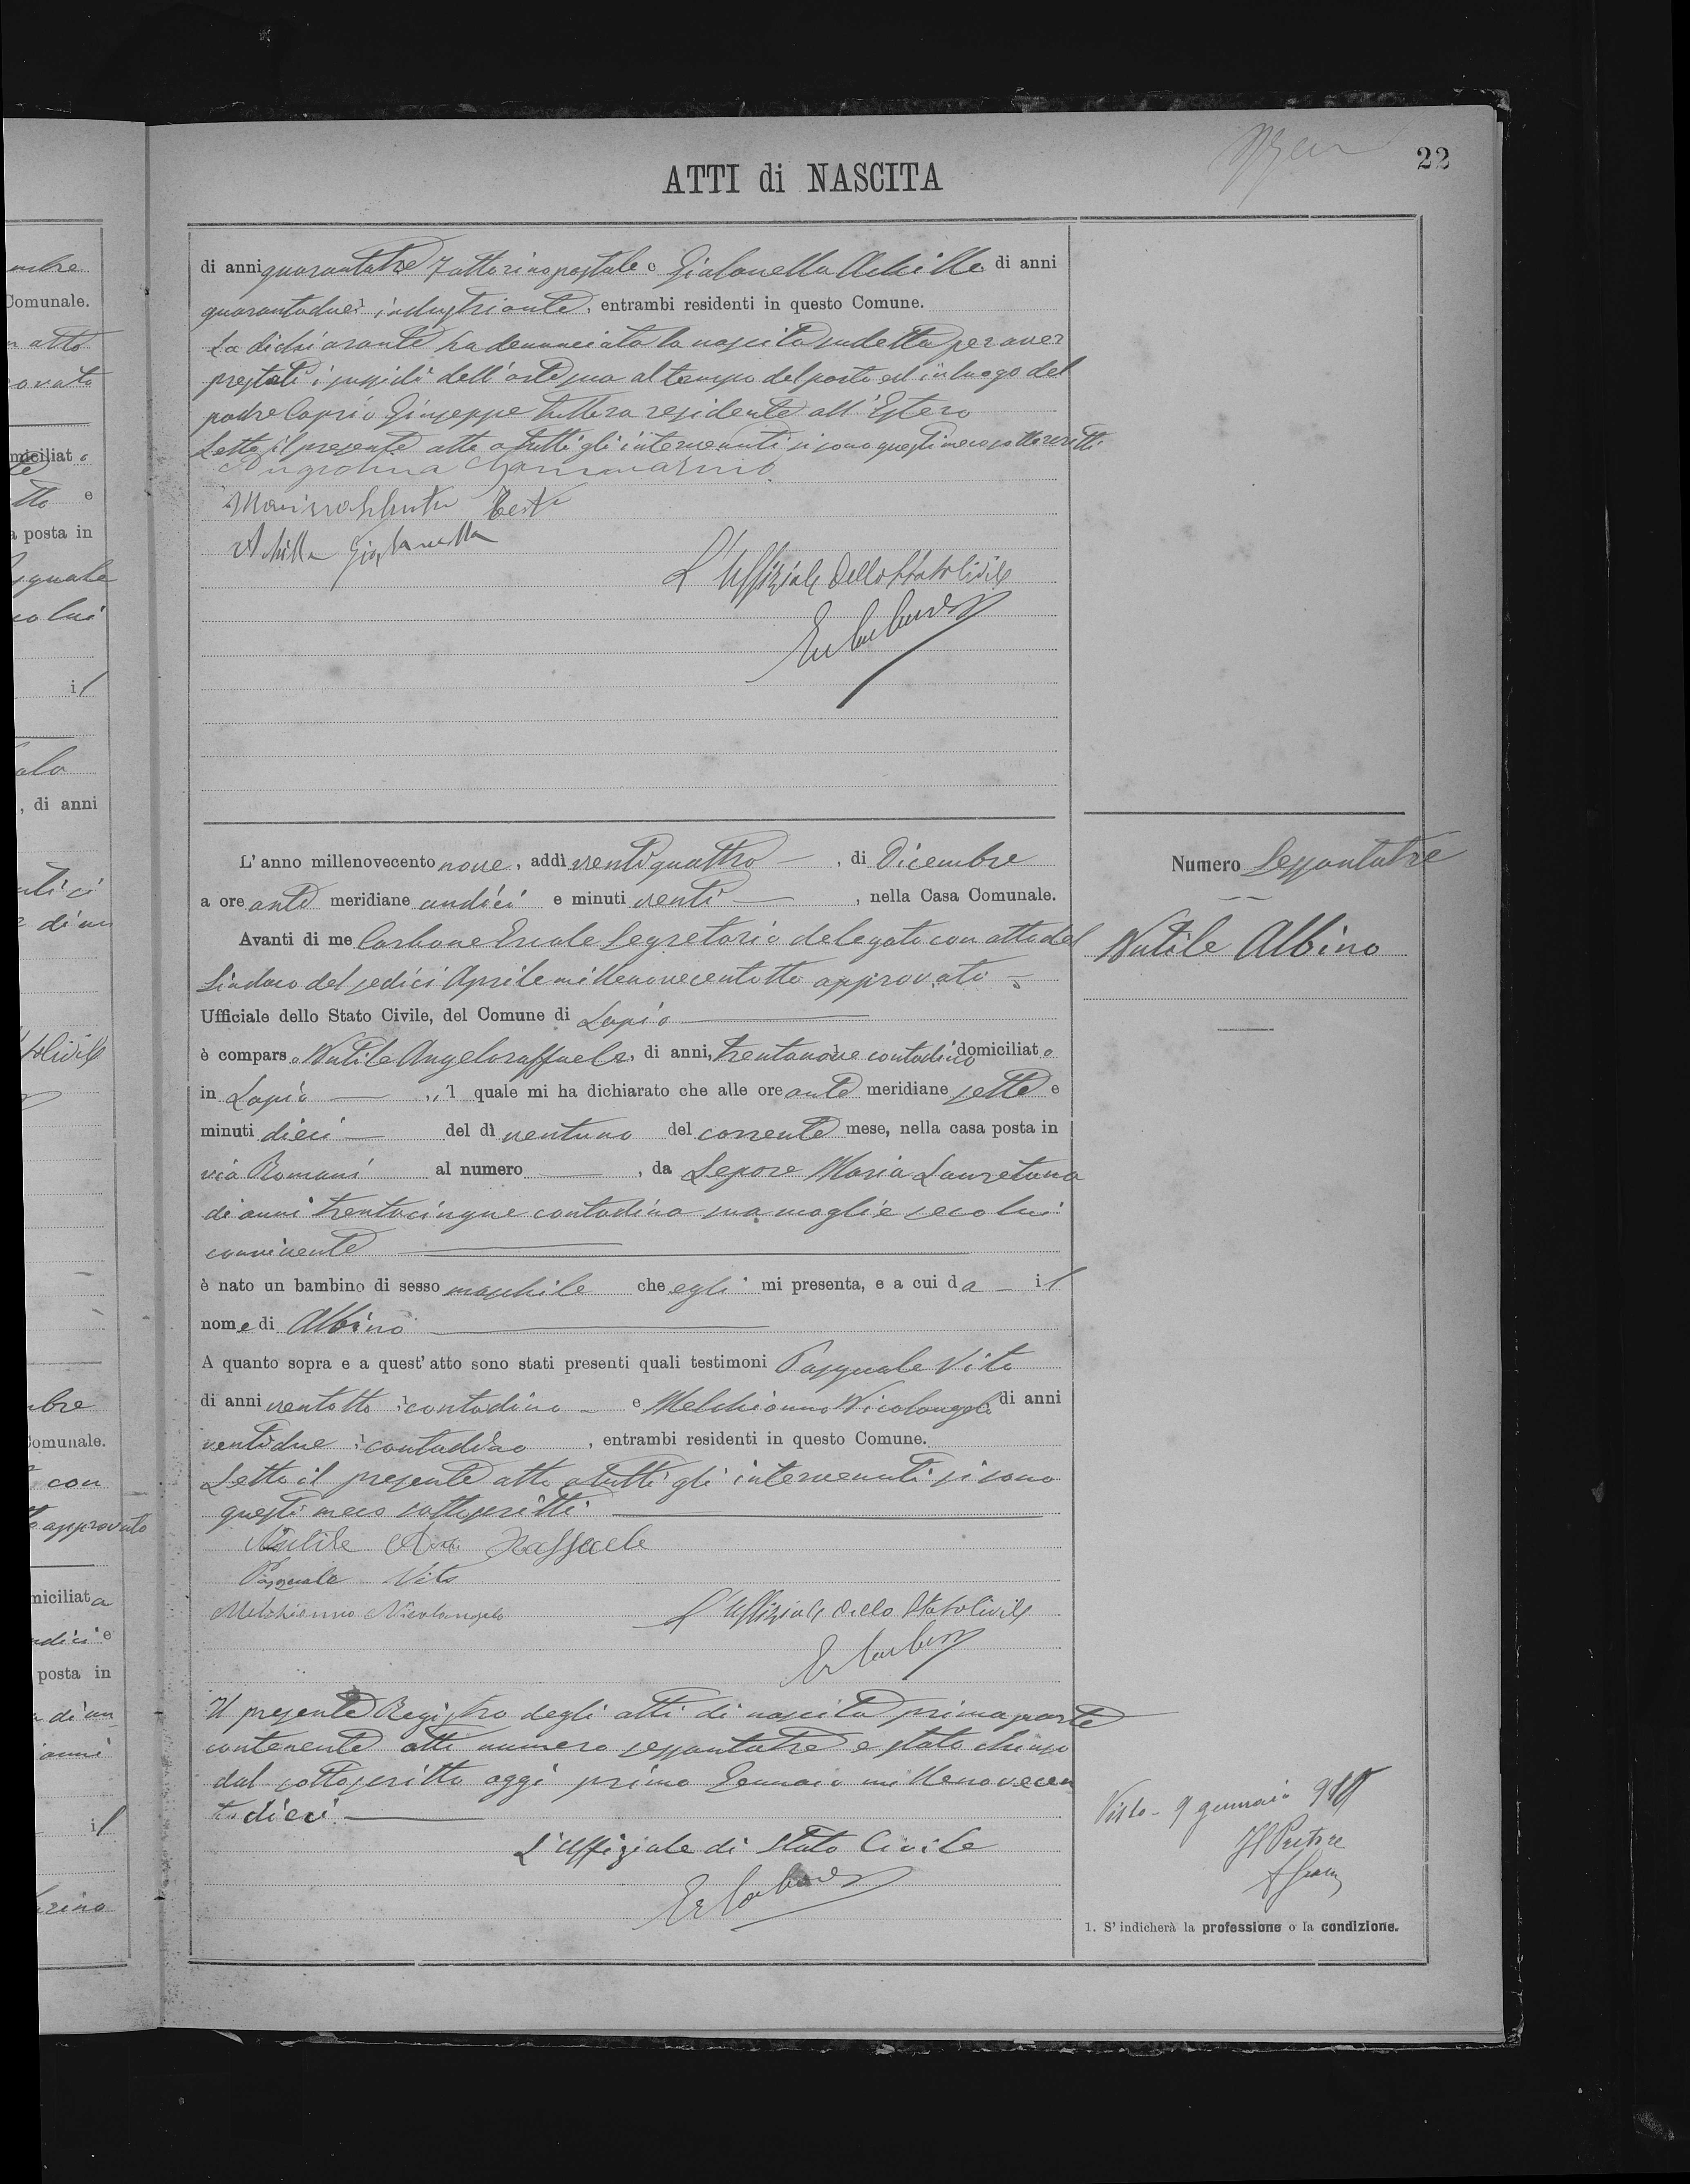 22
ATTI di NASCITA
di anni quarantatre fattorino postale e Gialanella Achille di anni
quarantadue industriante, entrambi residenti in questo Comune.
La dichiarante ha denunciato la nascita sudetta per aver
prestati i sussidi dell'arte sua al tempo del parto ed in luogo del
padre Caprio Giuseppe tuttora residente all'Estero
Letto il presente atto a tutti gli intervenuti si sono questi meco sottoscritti
Achille Gialanella
L'Uffiziale dello Stato Civile
L'anno millenovecento nove, addì ventiquattro, di Dicembre
a ore ante meridiane undici e minuti venti, nella Casa Comunale.
Avanti di me Carbone Ercole Segretario delegato con atto del
Sindaco del sedici Aprile millenovecentotto approvato
Ufficiale dello Stato Civile, del Comune di Lapio
è comparso Nutile Angeloraffaele, di anni trentanove contadino domiciliato
in Lapio, il quale mi ha dichiarato che alle ore ante meridiane sette e
minuti dieci del dì ventuno del corrente mese, nella casa posta in
via Romani al numero, da Lepore Maria Lauretana
di anni trentacinque contadina sua moglie seco lui
convivente
è nato un bambino di sesso maschile che egli mi presenta, e a cui da il
nome di Albino
A quanto sopra e a quest'atto sono stati presenti quali testimoni Pasquale Vito
di anni ventotto contadino e Melchionno Nicolangelo di anni
ventidue contadino, entrambi residenti in questo Comune.
Letto il presente atto a tutti gli intervenuti si sono
questi meco sottoscritti
Nutile Raffaele
Pasquale Vito
Melchionno Nicolangelo
L'Uffiziale dello Stato Civile
Il presente Registro degli atti di nascita prima parte
contenente atti numero sessantatre e stato chiuso
dal sottoscritto oggi primo Gennaio millenovecen
todieci.
L'Uffiziale di Stato Civile
Numero Sessantatre
Nutile Albino
Visto - 9 gennaio 910
Il Pretore
1. S'indicherà la professione o la condizione.